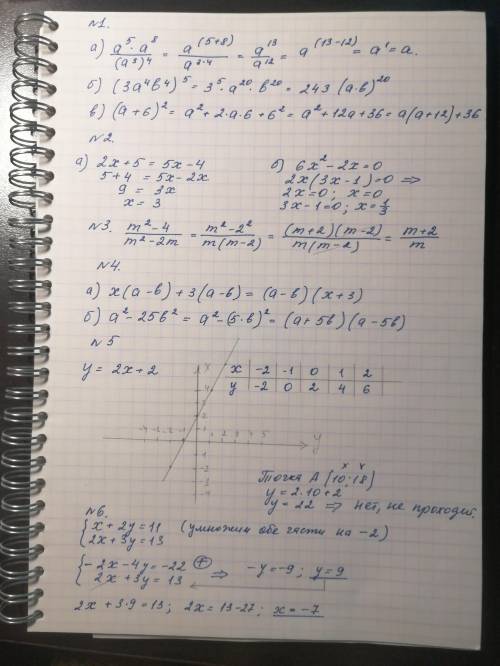 №1.
а) a⁵·a⁸/(a³)⁴ = a^(5+8)/a^3·4 = a¹³/a¹² = a^(13-12) = a¹ = a.
б) (3a⁴b⁴)⁵ = 3⁵·a²⁰·b²⁰ = 243 (a·b)²⁰
в) (a+6)² = a²+2·a·6+6² = a²+12a+36 = a(a+12)+36
№2.
а) 2x+5 = 5x-4
5+4 = 5x-2x
9 = 3x
x = 3
б) 6x²-2x=0
2x(3x-1)=0 ⇒
2x=0; x=0
3x-1=0; x=1/3
№3. m²-4/m²-2m = m²-2²/m(m-2) = (m+2)(m-2)/m(m-2) = m+2/m
№4.
а) x(a-b)+3(a-b) = (a-b)(x+3)
б) a²-25b² = a²-(5·b)² = (a+5b)(a-5b)
№5
y = 2x+2
x -2 -1 0 1 2
y -2 0 2 4 6
y
Точка A (10;18)
x y
y = 2·10+2
y = 22 ⇒ нет, не проходит.
№6.
{x+2y=11 (умножим обе части на -2)
2x+3y=13
{-2x-4y=-22 (+)
2x+3y=13 ⇒ -y=-9; y=9
2x+3·9=13; 2x=13-27; x=-7